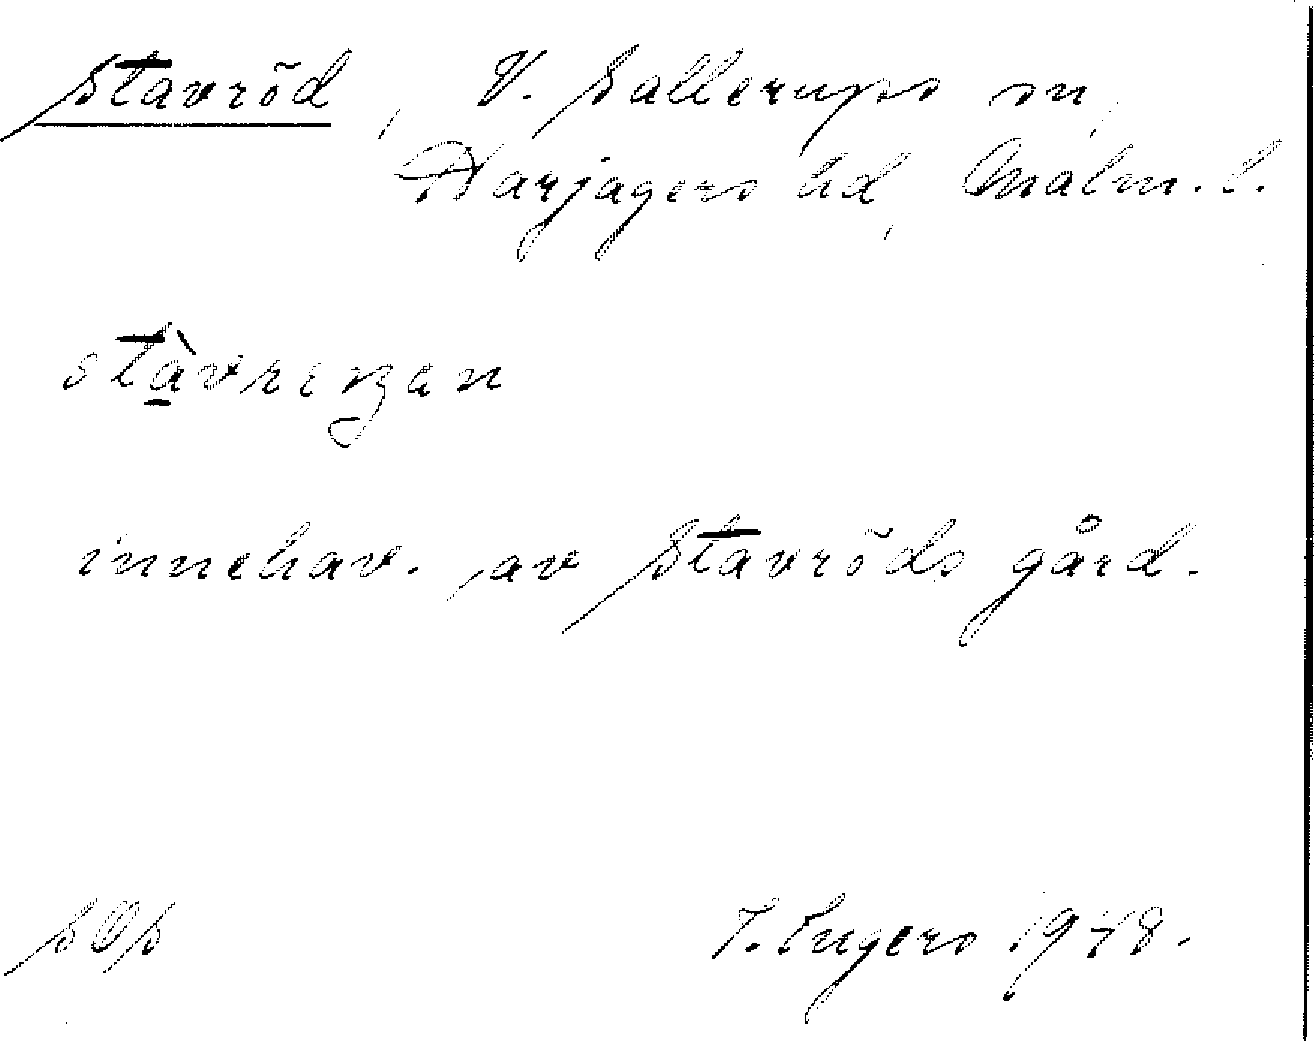 Stavröd, V. Sallerups sn,
Harjagers hd, Malm. l.
stàvreŋan
innehav. av Stavröds gård.
SOS T. Ingers 1948.